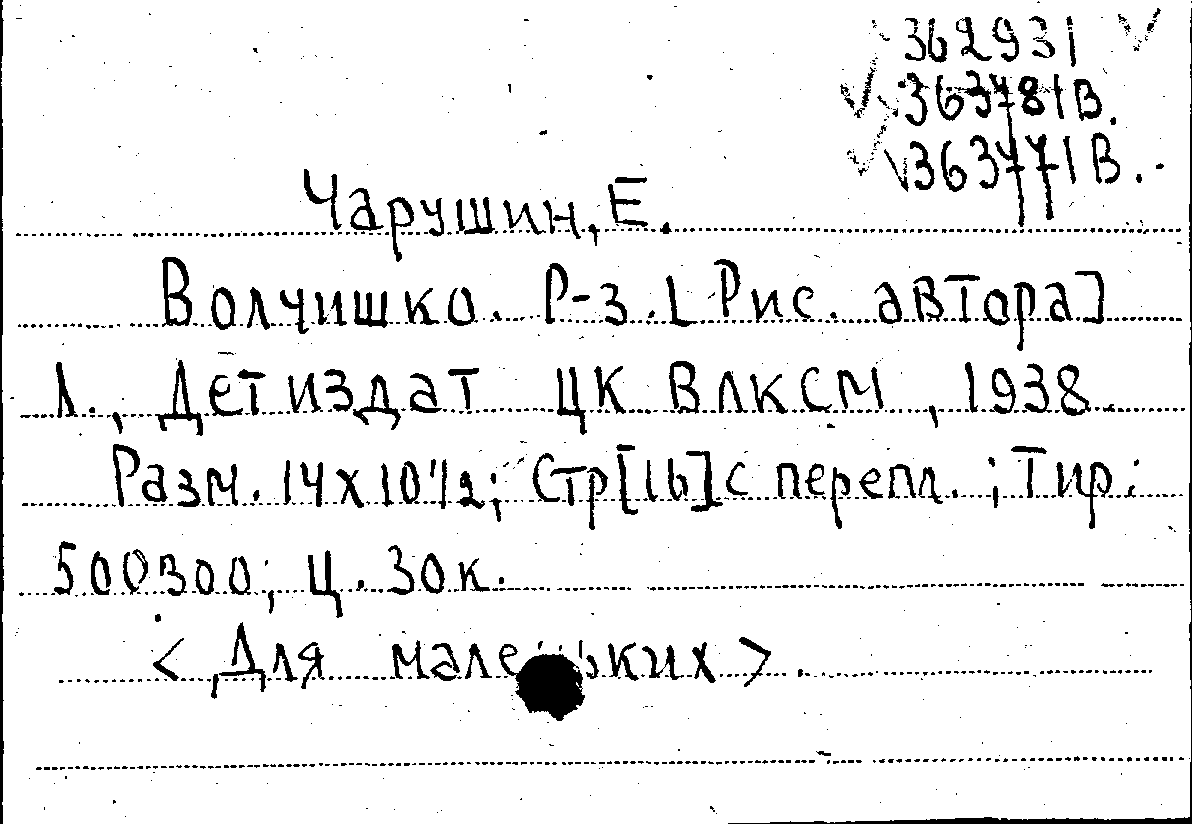 362931
363781В.
363771В.
Чарушин, Е.
Волчишко. Р-з. [Рис. автора]
Л., Детиздат ЦК ВЛКСМ, 1938.
Разм. 14х10 1/2; Стр[16] с перепл.; Тир:
500300; Ц. 30к.
<Для маленьких>.